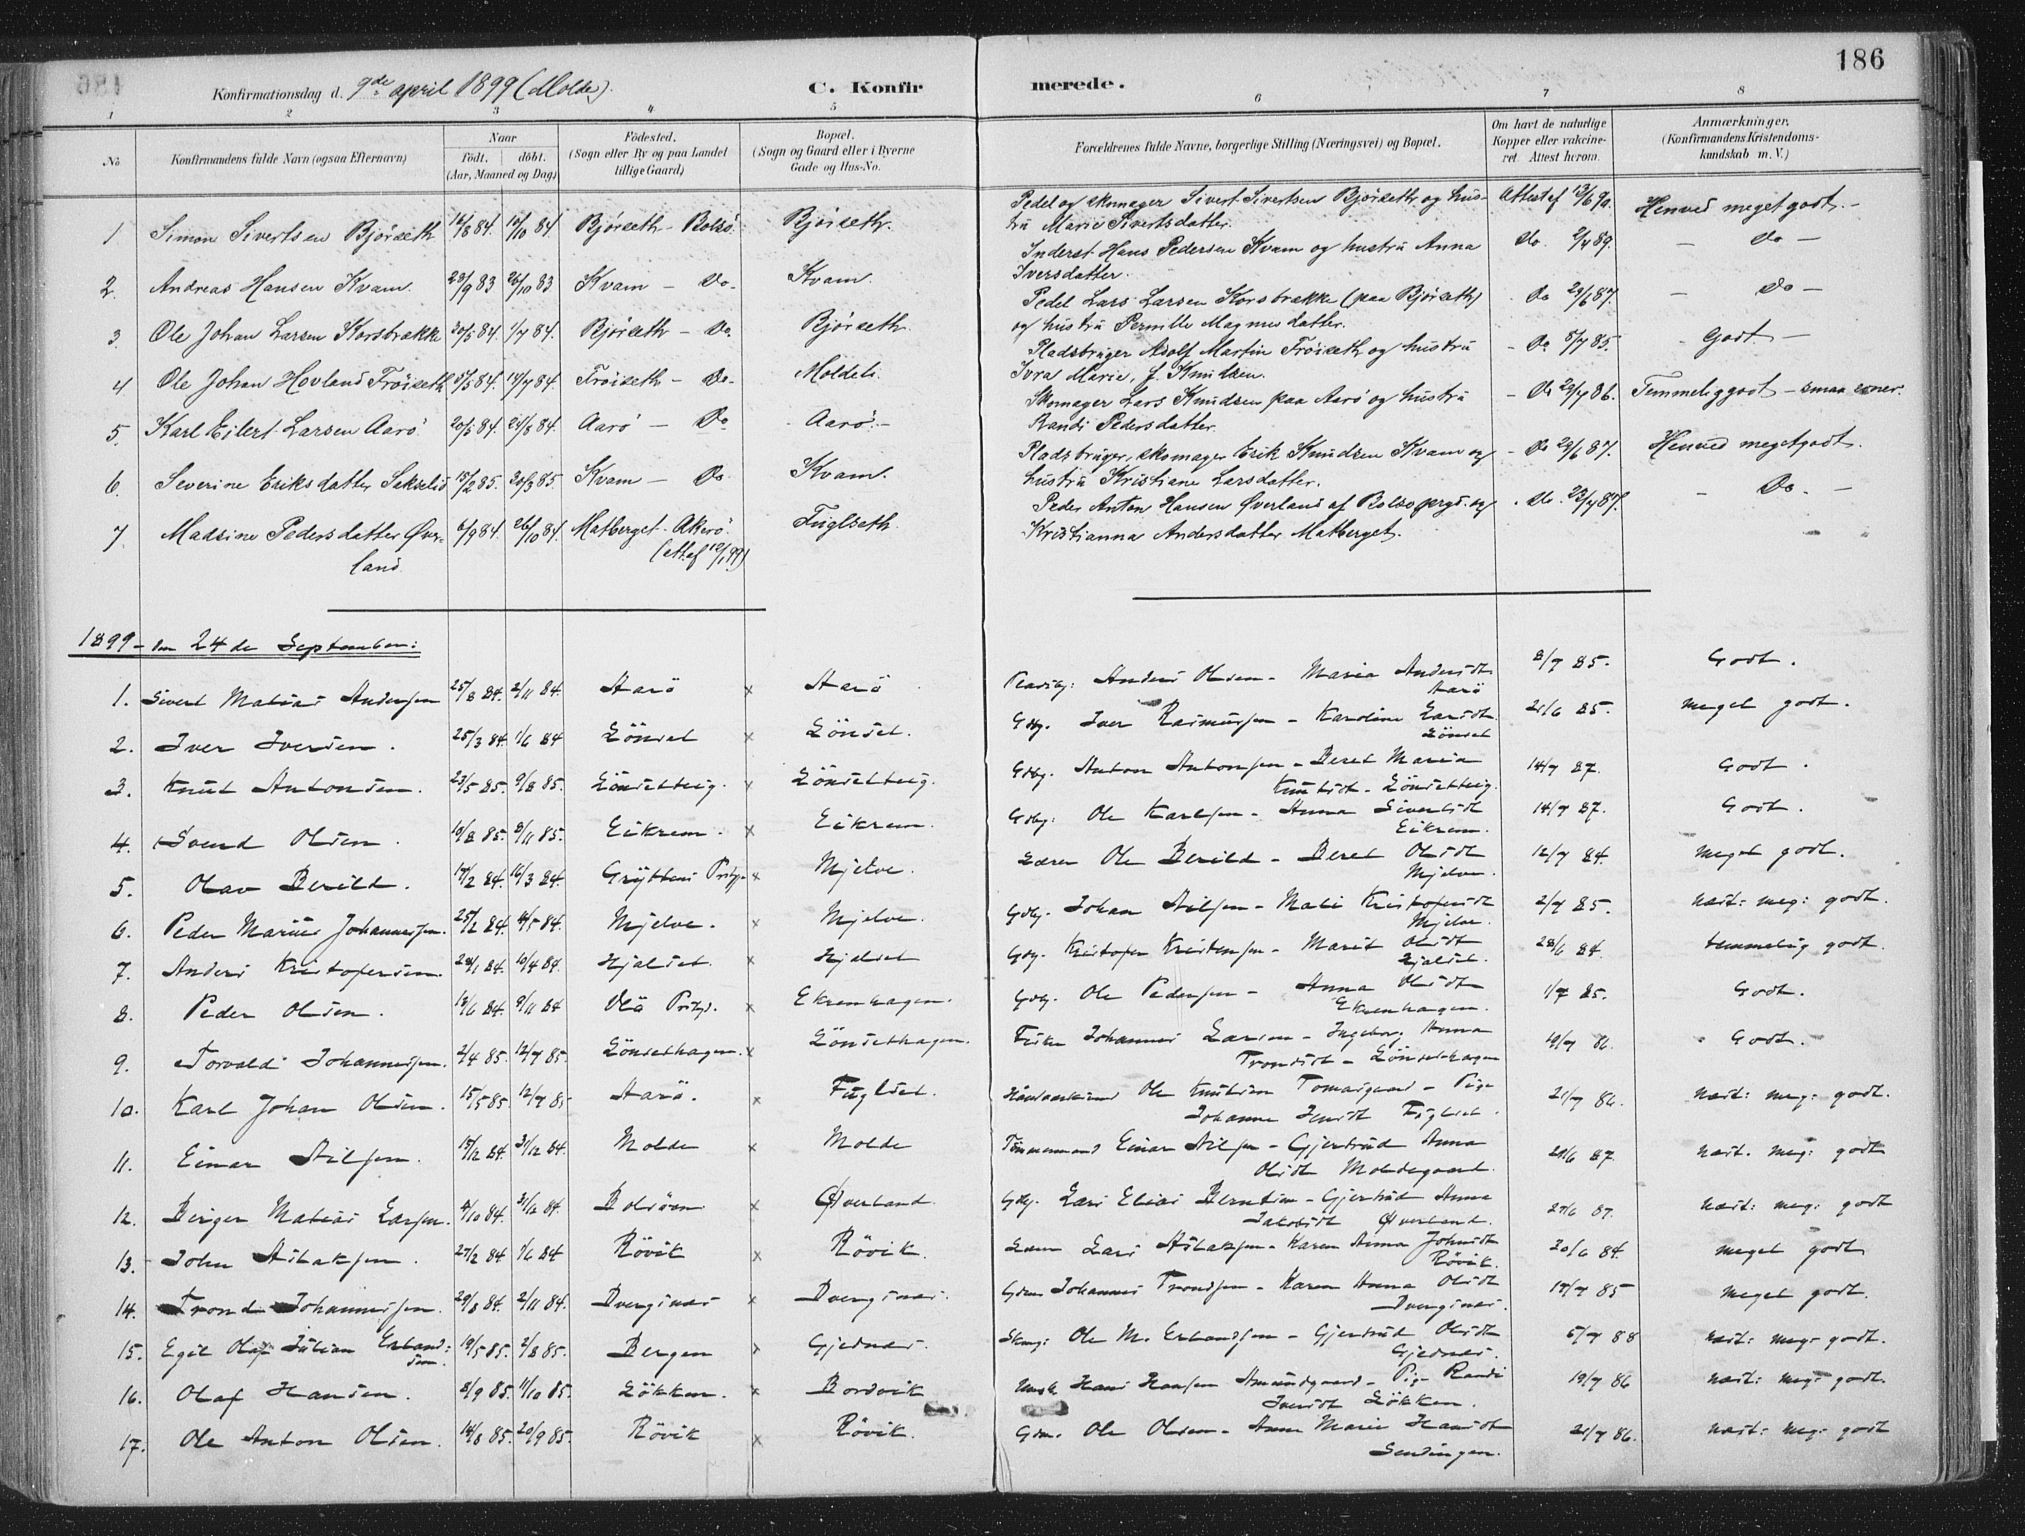 186
Konfirmationsdag d. 9de april 1899 (Molde). C. Konfir merede.
1 2 3 4 5 6 7 8
No Konfirmandens fulde Navn (ogsaa Efternavn) Naar födt. döbt. (Aar, Maaned og Dag) Födested. (Sogn eller By og paa Landet tillige Gaard) Bopæl. (Sogn og Gaard eller i Byerne Gade og Hus-No. Forældrenes fulde Navne, borgerlige Stilling (Næringsvei) og Bopæl. Om havt de naturlige Kopper eller vakcineret. Attest herom. Anmærkninger. (Konfirmandens Kristendomskundskab m. V.)
1 Simon Sivertsen Bjørseth 84. 84. Bjørseth - Bolsö. Bjørseth. Pedel og skomager Sivert Sivertsen Bjørseth og hustru Marie Sivertsdatter. Attest af 13/6 90. Henved meget godt. -
2. Andreas Hansen Kvam. 23/9 83 26/10 83 Kvam - Do. Kvam. Inderst Hans Pedersen Kvam og hustru Anna Iversdatter. Do. 2/7 89. - Do -
3. Ole Johan Larsen Korsbrække 20/5 84. 1/7 84. Bjørseth - Do. Bjørseth. Pedel Lars Larsen Korsbrække (paa Bjørseth) og hustru Pernille Magnusdatter. - Do 29/6 87. - Do -
4 Ole Johan Hovland Trøiseth 5/5 84. 14/7 84. Trøiseth - Do. Moldeli. Pladsbruger Adolf Martin Trøiseth og hustru Ivra Marie, f. Knudsen. - Do 8/7 85. Godt -
5. Karl Eilert Larsen Aarö 20/5 84. 24/8 84. Aarö - Do Aarö. - Skomager Lars Knudsen paa Aarö og hustru Randi Pedersdatter. - Do 29/7 86. Temmelig godt - smaa evner.
6. Severine Eriksdatter Sakselid 15/2 85. 85. Kvam - Do Kvam. Pladsbruger, skomager Erik Knudsen Kvam og hustru Kristiane Larsdatter. - Do 29/6 87. Henved meget godt.
7. Madsine Pedersdatter Øverland 6/9 84. 26/10 84. Matberget - Akerö (att. af 12/1 99) Fuglseth. Peder Anton Hansen Øverland af Bolsø prgd. og Kristianna Andersdatter Matberget. - Do. 23/7 87. - Do. -
1899 - den 24de September:
1. Sivert Matias Andersen 25/8 84. 2/11 84. Aarö x Aarö Pladsbg: Anders Olsen - Maria Andersdt. Aarö 8/7 85. Godt.
2. Iver Iversen. 25/3 84. 1/6 84 Lönset x Lönset. Gdbg. Iver Rasmussen - Karoline Larsdt. Lönset 21/6 85. meget godt.
3. Knut Antonsen. 23/5 85. 9/8 85. Lönsetteig. x Lönsetteig. Gdbg. Anton Antonsen - Beret Maria Knutsdt - Lönsetteig. 14/7 87. Godt.
4. Svend Olsen. 10/8 85. 8/11 85. Eikrem. x Eikrem. Gdbg: Ole Karlsen - Anna Sivertsdt Eikrem. 14/7 87. Godt.
5. Olav Berild. 17/2 84. 16/3 84. Gryttens Prstgj. x Mjelve. Lærer Ole Berild - Beret Olsdt Mjelve. 12/7 84. meget godt.
6. Peder Marius Johannessen. 25/2 84. 84. Mjelve. x Mjelve. Gdbg. Johan Nilsen - Mali Kristofersdt Mjelve. 2/7 85. næst: meg: godt.
7. Anders Kristofersen. 28/1 84. 10/4 84. Hjelset. x Hjelset Gdbg. Kristofer Kristensen - Marit Olsdt Hjelset. 28/6 84. temmelig godt.
8. Peder Olsen. 13/6 84. 9/11 84 Veö Prstgj. x Ekrenhagen. Gdbg. Ole Pedersen - Anna Olsdt Ekrenhagen. 1/7 85. Godt.
9. Torvald Johannessen. 2/4 85. 12/7 85. Lönsethagen. x Lönsethagen. Fisker Johannes Larsen - Ingeborg Anna Trondsdt - Lönsethagen 19/7 86. Godt.
10. Karl Johan Olsen. 15/5 85. 12/7 85 Aarö. x Fuglset. Ole Knutsen Tomasgaard - Pige Johanne Jensdt Fuglset. 21/7 86. næst: meg: godt.
11. Einar Nilsen. 15/12 84. 31/12 84. Molde x Molde Tömmermand Einar Nilsen - Gjertrud Anna Olsdt Moldegaard. 29/6 87. næst. meg: godt
12. Birger Matias Larsen. 4/10 84. 31/12 84. Bolsöen x Øverland. Gdbg. Lars Elias Berntsen - Gjertrud Anna Jakobsdt Øverland. 27/6 87. næst: meg: godt
13. John Aslaksen. 27/2 84. 1/6 84 Rövik x Rövik. Lærer Lars Aslaksen - Karen Anna Johnsdt Rövik. 20/6 84. meget godt
14. Trond Johannessen. 29/8 84. 2/11 84. Dvergsnes x Dvergsnes. Gdm. Johannes Trondsen - Karen Anna Olsdt Dvergsnes. 17/7 85 meget godt.
15. Egil Olaf Julian Erlandsen 19/5 85. 2/8 85. Bergen x Gjednes. Skomg: Ole M. Erlandsen - Gjertrud Olsdt Gjednes. 5/7 88 næst: meg: godt.
16. Olaf Hansen. 8/9 85. 11/10 85. Lökken. x Bordvik Hans Hansen Amundgaard - Pige Randi Iversdt Lökken. 19/7 86 næst: meg: godt.
17. Ole Anton Olsen. 14/8 85. 20/9 85. Rövik x Rövik. Gdm. Ole Olsen - Anne Marie Hansdt Sendingen. 21/7 86. næst: meg: godt